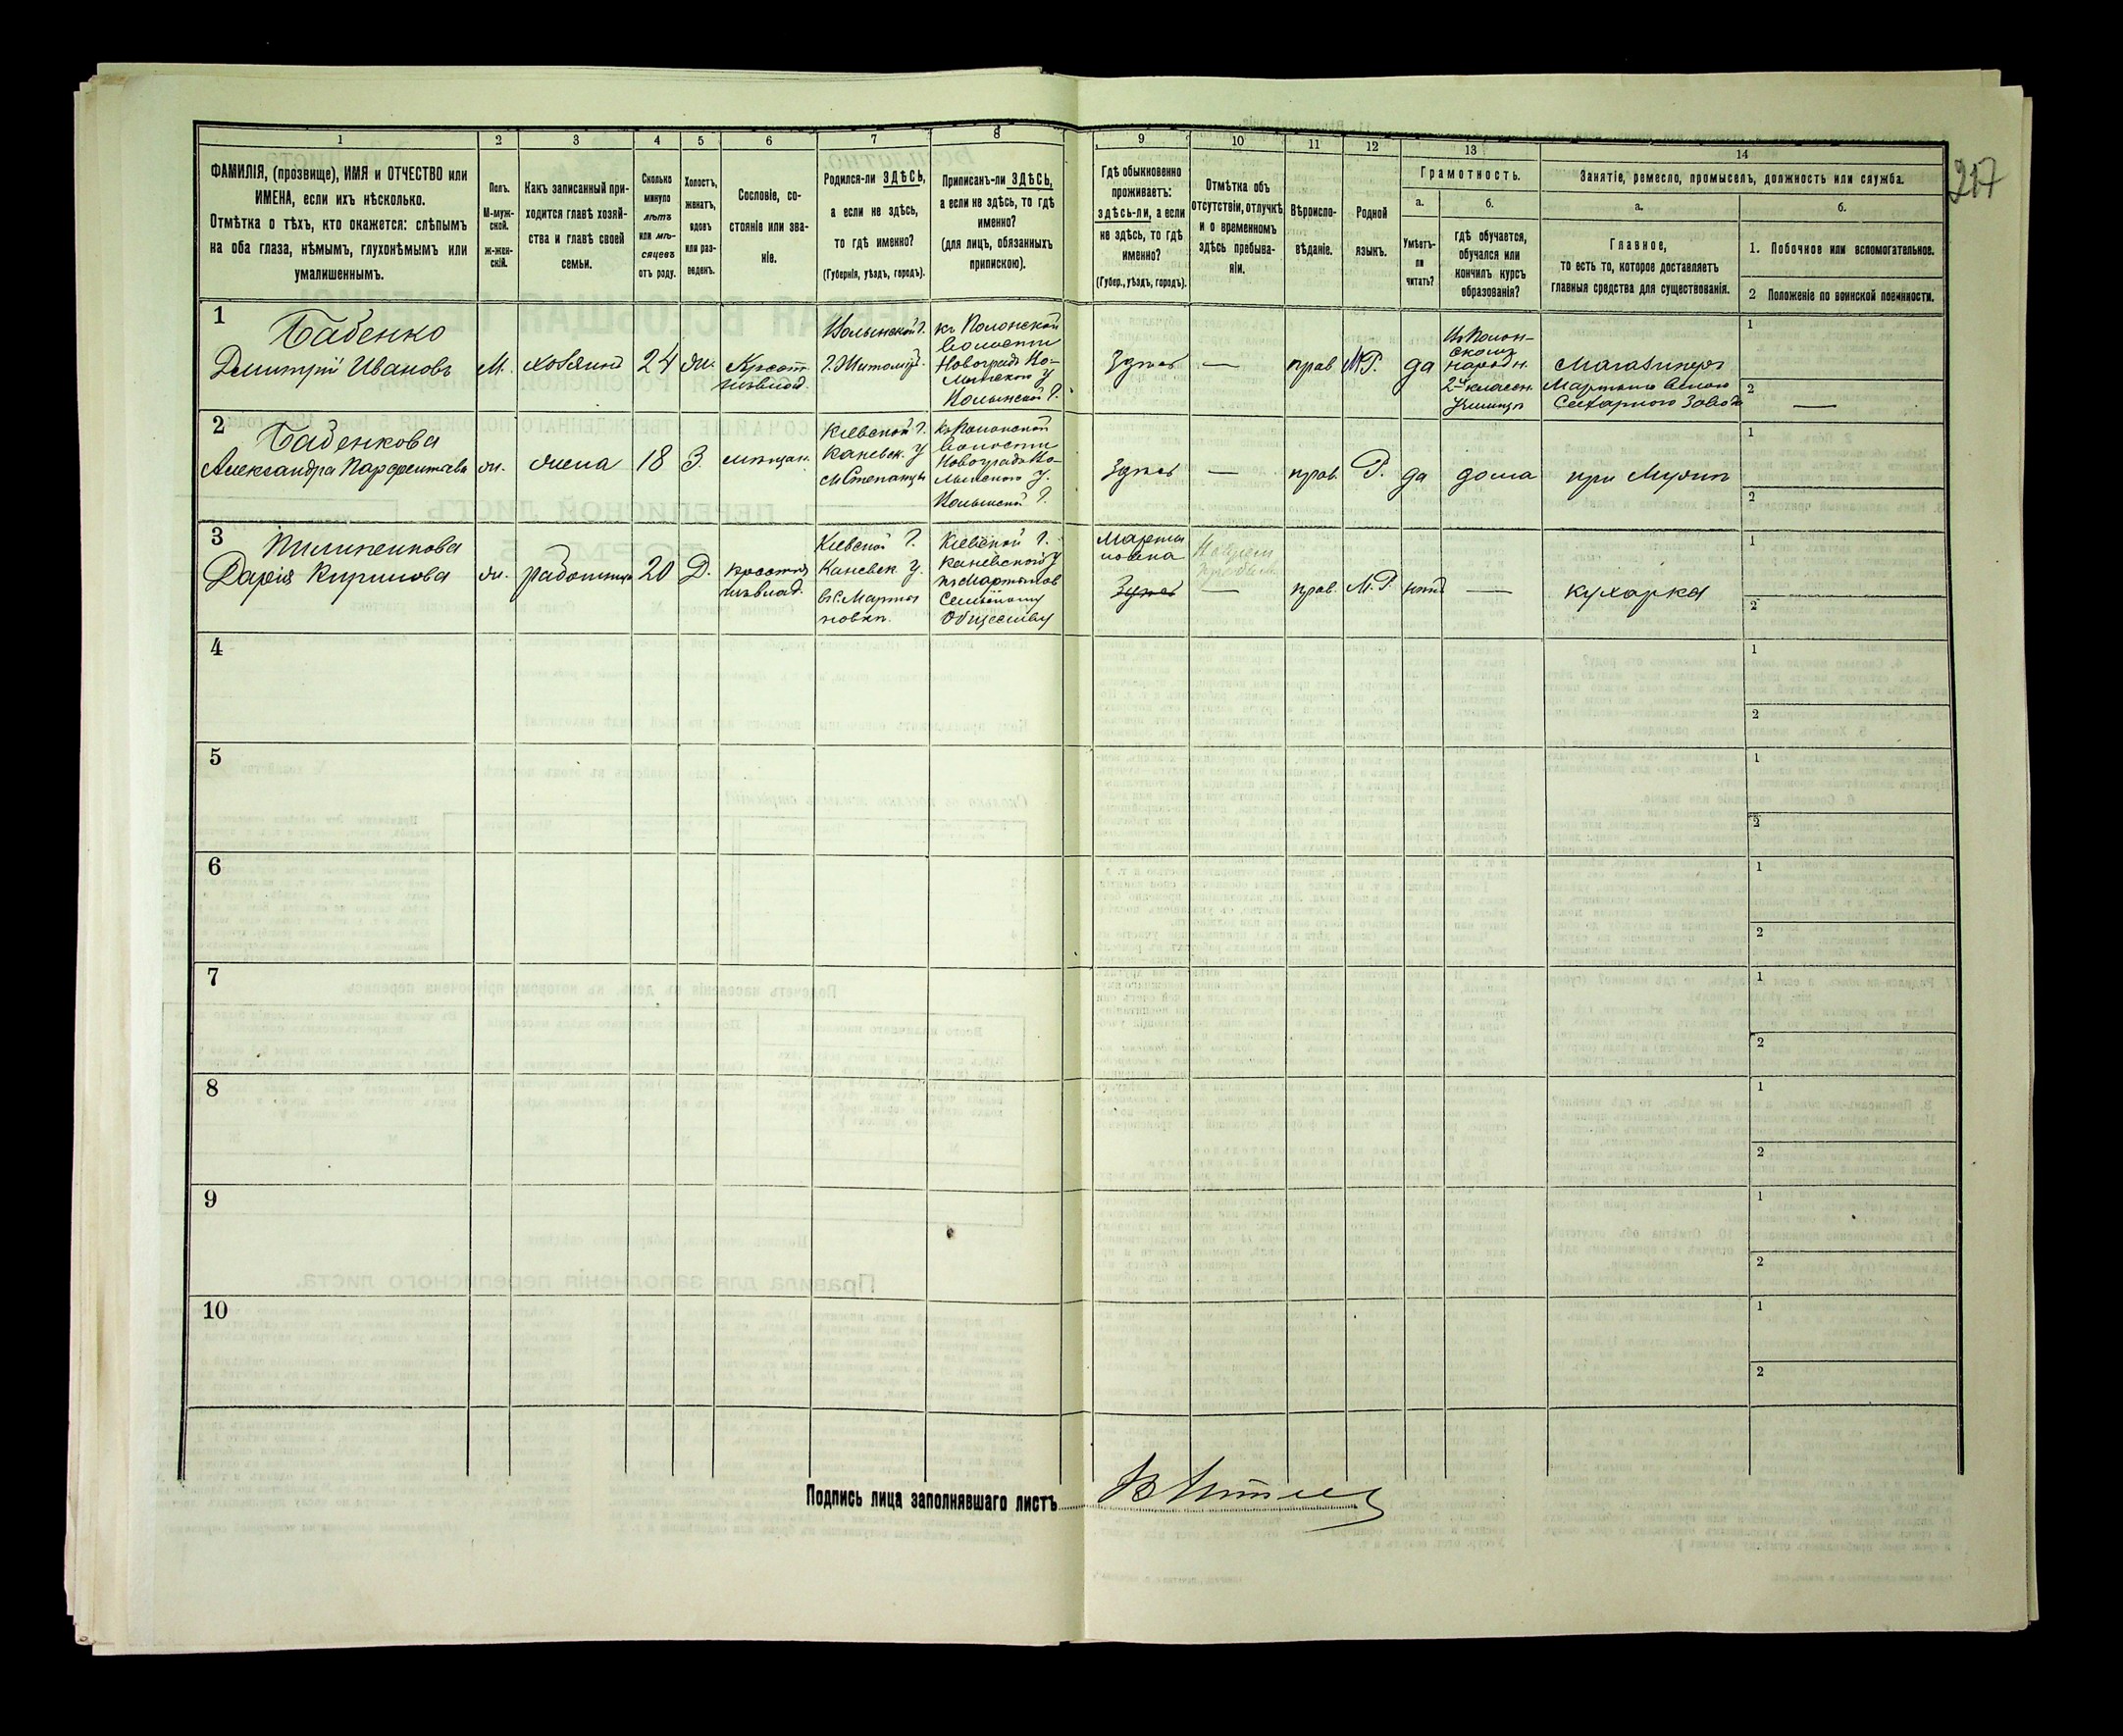 217
1
2
3
4
5
6
7
8
9
10
11
12
13
14
ФАМИЛІЯ, (прозвище), ИМЯ и ОТЧЕСТВО или
ИМЕНА, если ихъ нѣсколько.
Отмѣтка о тѣхъ, кто окажется: слѣпымъ
на оба глаза, нѣмымъ, глухонѣмымъ или
умалишеннымъ.
Полъ.
М-муж-
ской.
ж-жен-
скій.
Какъ записанный при-
ходится главѣ хозяй-
ства и главѣ своей
семьи.
Сколько
минуло
лѣтъ
или мѣ-
сяцевъ
отъ роду.
Холостъ,
женатъ,
вдовъ
или раз-
веденъ.
Сословіе, со-
стояніе или зва-
ніе.
Родился-ли ЗДѢСЬ,
а если не здѣсь,
то гдѣ именно?
(Губернія, уѣздъ, городъ).
Приписанъ-ли ЗДѢСЬ,
а если не здѣсь, то гдѣ
именно?
(для лицъ, обязанныхъ
припискою).
Гдѣ обыкновенно
проживаетъ:
здѣсь-ли, а если
не здѣсь, то гдѣ
именно?
(Губер., уѣздъ, городъ).
Отмѣтка объ
отсутствіи, отлучкѣ
и о временномъ
здѣсь пребыва-
ніи.
Вѣроиспо-
вѣданіе.
Родной
языкъ.
Грамотность.
а.
Умѣетъ-
ли
читать?
б.
гдѣ обучается,
обучался или
кончилъ курсъ
образованія?
Занятіе, ремесло, промыселъ, должность или служба.
а.
Главное,
то есть то, которое доставляетъ
главныя средства для существованія.
б.
1. Побочное или вспомогательное.
2 Положеніе по воинской повинности.
1
Бабенко
Дмитрій Ивановъ
М.
хозяинъ
24
ж.
Крест.
из влад.
Волынской Г.
Г. Житомір.
къ Полонской
волости
Новоградъ Во-
лынского У
Волынской Г.
Здѣсь
—
прав
М.Р.
да
Въ Полон-
скомъ
народн.
2х классн.
Училищѣ
Магазинеръ
Сахарного Завода
1
2
—
2
Бабенкова
Александра Парфентьева
ж.
жена
18
З.
мѣщан.
Кіевской Г.
Каневск. У
м Степанцы
къ Полонской
волости
Новоградъ Во-
лынского У.
Волынской Г.
Здѣсь
—
прав.
Р.
да
дома
при Мужѣ
1
2
3
Дарія Кирилова
ж.
работница
20
Д.
крестья
из влад.
Кіевской Г.
Каневск У.
въ с. Марты
новкѣ.
Кіевской Г.
Каневской У
къ Мартынов
Сельскому
Обществу
Марты
новка
Здѣсь
—
прав.
М.Р.
нѣтъ
—
кухарка
1
2
4
1
2
5
1
2
6
1
2
7
1
2
8
1
2
9
1
2
10
1
2
Подпись лица заполнявшаго листъ